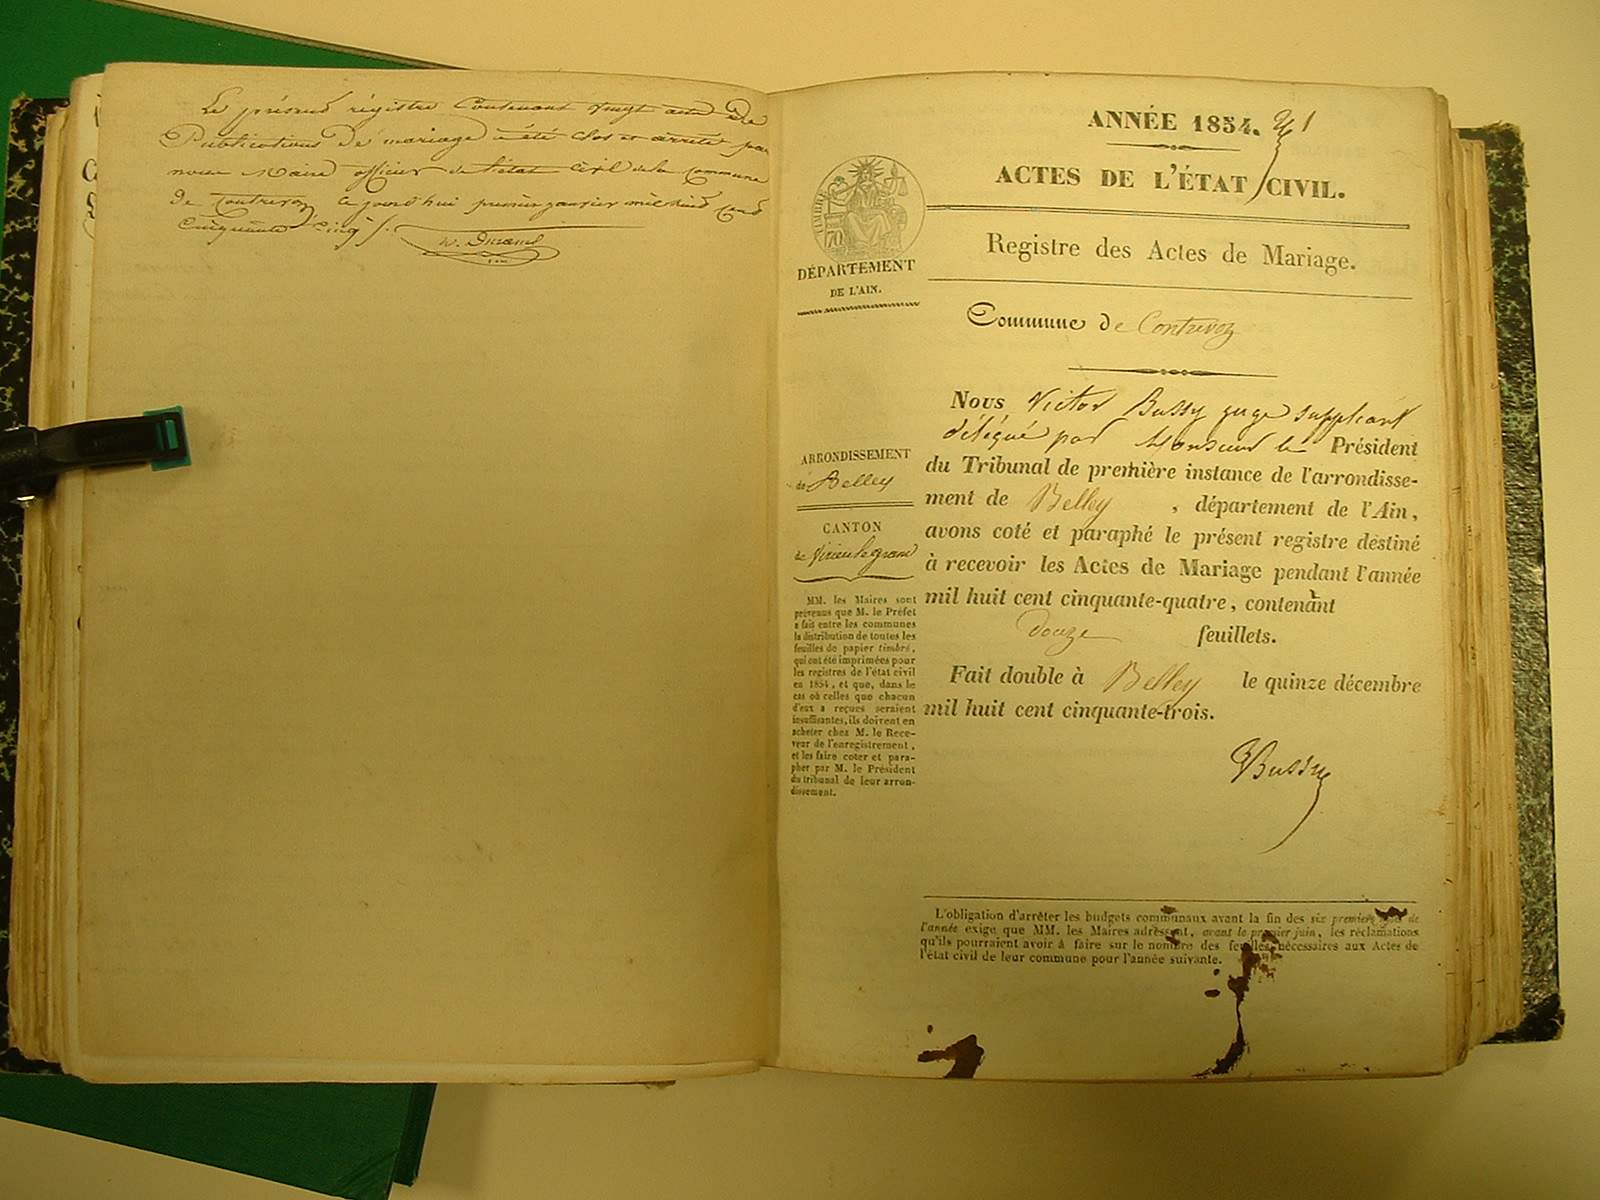 Le présent régistre Contenant vingt actes de
Publications De mariage a été clos et arrêté par
nous Maire officier de l'état civil de la Commune
De Contrevoz ce jourd'hui premier janvier mil huit cent
Cinquante Cinq /.
ANNÉE 1854.
1
ACTES DE L'ÉTAT CIVIL.
Registre des Actes de Mariage.
TIMBRE
70
DÉPARTEMENT
DE L'AIN.
Commune de Contrevoz
ARRONDISSEMENT
de Belley
CANTON
de Virieu le grand
MM. les Maires sont
prévenus que M. le Préfet
a fait entre les communes
la distribution de toutes les
feuilles de papier timbré,
qui ont été imprimées pour
les registres de l'état civil
en 1854, et que, dans le
cas où celles que chacun
d'eux a reçues seraient
insuffisantes, ils doivent en
acheter chez M. le Rece-
veur de l'enregistrement,
et les faire coter et para-
pher par M. le Président
du tribunal de leur arron-
dissement.
Nous Victor Bussy juge suppléant
délégué par Monsieur le Président
du Tribunal de première instance de l'arrondisse-
ment de Belley , département de l'Ain,
avons coté et paraphé le présent registre destiné
à recevoir les Actes de Mariage pendant l'année
mil huit cent cinquante-quatre, contenant
Douze feuillets.
Fait double à Belley le quinze décembre
mil huit cent cinquante-trois.
VBussy
L'obligation d'arrêter les budgets communaux avant la fin des six premiers mois de
l'année exige que MM. les Maires adressent, avant le premier juin, les réclamations
qu'ils pourraient avoir à faire sur le nombre des feuilles nécessaires aux Actes de
l'état civil de leur commune pour l'année suivante.